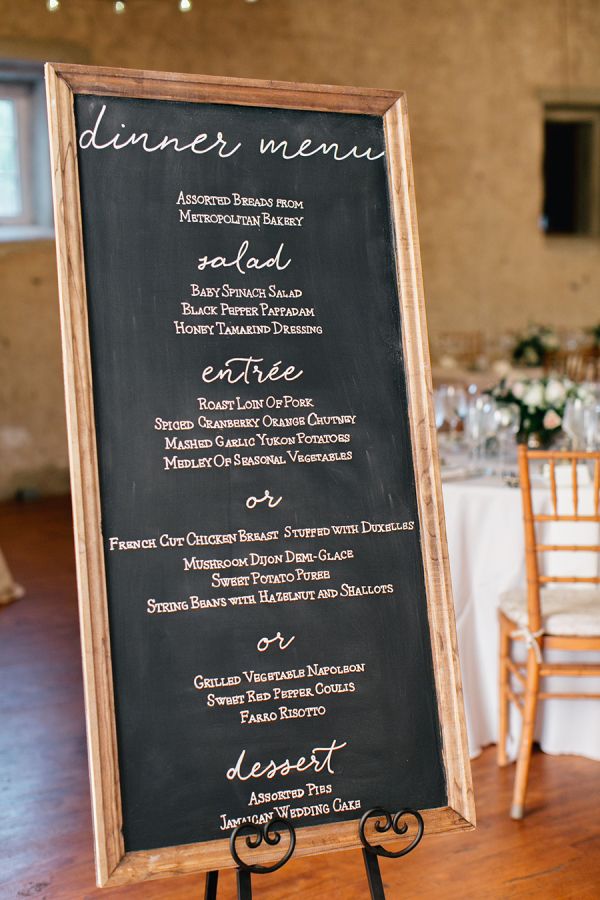 dinner menu
Assorted Breads from
Metropolitan Bakery
salad
Baby Spinach Salad
Black Pepper Pappadam
Honey Tamarind Dressing
entrée
Roast Loin Of Pork
Spiced Cranberry Orange Chutney
Mashed Garlic Yukon Potatoes
Medley Of Seasonal Vegetables
or
French Cut Chicken Breast Stuffed with Duxelles
Mushroom Dijon Demi-Glace
Sweet Potato Puree
String Beans with Hazelnut and Shallots
or
Grilled Vegetable Napoleon
Sweet Red Pepper Coulis
Farro Risotto
dessert
Assorted Pies
Jamaican Wedding Cake